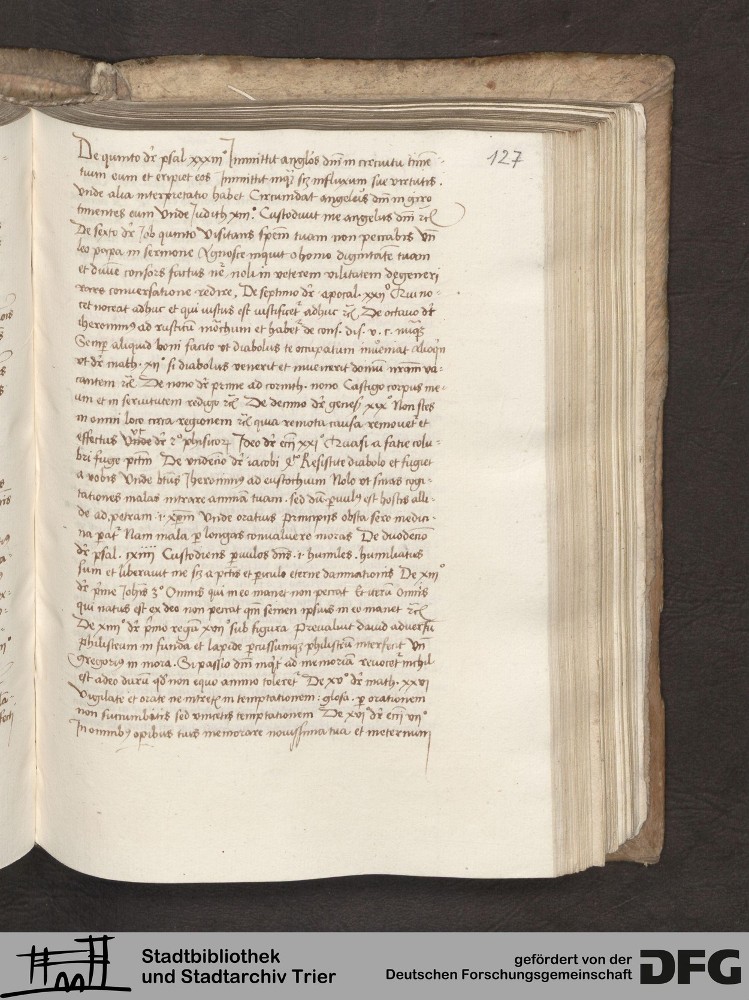 127
De quinto dr̄ psal xxxiiiº Inmittit angl̄s dnī in circuitu time-
tium eum et eripiet eos Inmittit inq̄ scz influxum sue virtutis.
Vnde alia interpretatio habet Circumdat angelus dnī in giro
timentes eum Vnde Judith xiiiº. Custodiuit me angelus dnī rc̄
De sexto dr̄ Job quinto Visitans spēm tuam non peccabis Vn̄
leo papa in sermone Agnosce inquit o homo dignitatē tuam
et diuīe consors factus nē noli in veterem vilitatem degeneri
conuersatione redire. De septimo dr̄ apocal. xxiiº Qui no-
cet noceat adhuc et qui iustus est iustificet᷑ adhuc rc̄ De octauo dr̄
iheronimꝰ ad rusticū mōchum et habet᷑ de cons. dis. v. c. nūqȝ
Semꝑ aliquid boni facito vt diabolus te occupatum inueniat alioqn̄
vt dr̄ math. xiiº si diabolus venerit et inuenerit domū nr̄am va-
cantem rc̄ De nono dr̄ prime ad corinth. nono Castigo corpus me-
um et in seruitutem redigo rc̄ De decimo dr̄ genes̄ xixº Non stes
in omni loco circa regionem rc̄ quia remota causa remouet᷑ et
effectus Vnde dr̄ 2º phisicoꝝ Ideo dr̄ eccī xxi Quasi a facie colu-
bri fuge pctm̄ De vndecīo dr̄ iacobi Resistite diabolo et fugiet
a vobis Vnde btūs Iheronimꝰ ad eustochium Nolo vt sinas cogi-
tationes malas intrare animā tuam. sed dū ꝑuulꝰ est hostis alli-
de ad petram .i. xpm̄ Vnde oratius Principijs obsta sero medici-
na pat᷑ Nam mala ꝑ longas conualuere moras De duodecīo
dr̄ psal. cxiiii Custodiens ꝑuulos dn̄s .i. humiles. humiliatus
sum et liberauit me scz a pctīs et ꝑiculo eterne damnationis De xiiiº
dr̄ pīme Johīs 3º Omnis qui in eo manet non peccat Et iterū Omīs
qui natus est ex deo non peccat qm̄ semen ipsius in eo manet rc̄
De xiiiiº dr̄ pīmo regū xviiº sub figura Preualuit dauid aduersū
philisteum in funda et lapide ꝑcussumqȝ philisteū interfecit Vn̄
gregoriꝰ in mora. Si passio dnī inq̄t ad memoriā reuocet᷑ nichil
est adeo durū qd̄ non equo animo toleret᷑ De xvº dr̄ math. xxvi
Vigilate et orate ne intret̄ in temptationem: glosa. ꝑ orationem
non succumbetis sed vincetis temptationem De xvi dr̄ eccī viiº
In omnibꝰ oꝑibus tuis memorare nouissima tua et ineternum
Stadtbibliothek
und Stadtarchiv Trier
gefördert von der
Deutschen Forschungsgemeinschaft
DFG